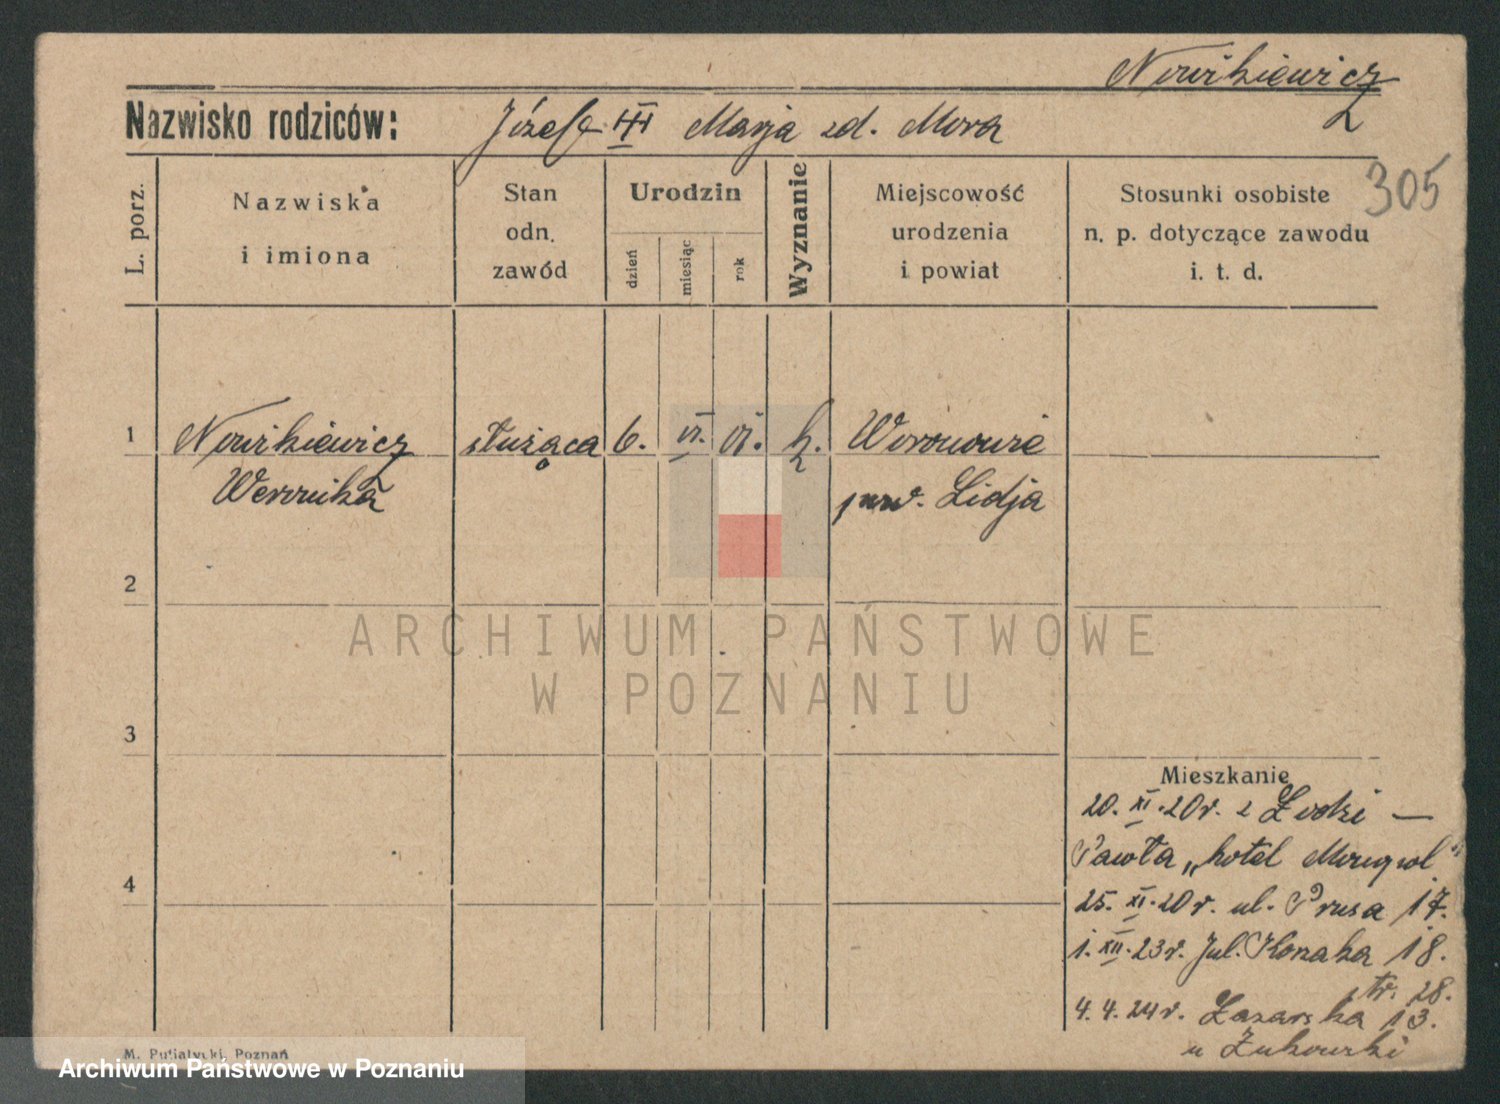 Nowikiewicz
Nazwisko rodziców: Józef III Marja zd. Mora
305
L. porz.
Nazwiska i imiona
Stan odn. zawód
Urodzin
dzień
miesiąc
rok
Wyznanie
Miejscowość urodzenia i powiat
Stosunki osobiste n. p. dotyczące zawodu i. t. d.
1 Nowikiewicz służąca 6. VI. VI. k. Woronowie
Weronika pow. Lidja
2
ARCHIWUM PAŃSTWOWE
W POZNANIU
3
Mieszkanie
20. XI. 20 r. z Łodzi —
4
Pawła „hotel Monopol"
25. XI. 20 r. ul. Prusa 17.
1. XII. 23 r. Jul. Konaka 18.
str. 28.
4. 4. 24 r. Łazarska 13.
u Żukowski
M. Putiatycki, Poznań
Archiwum Państwowe w Poznaniu